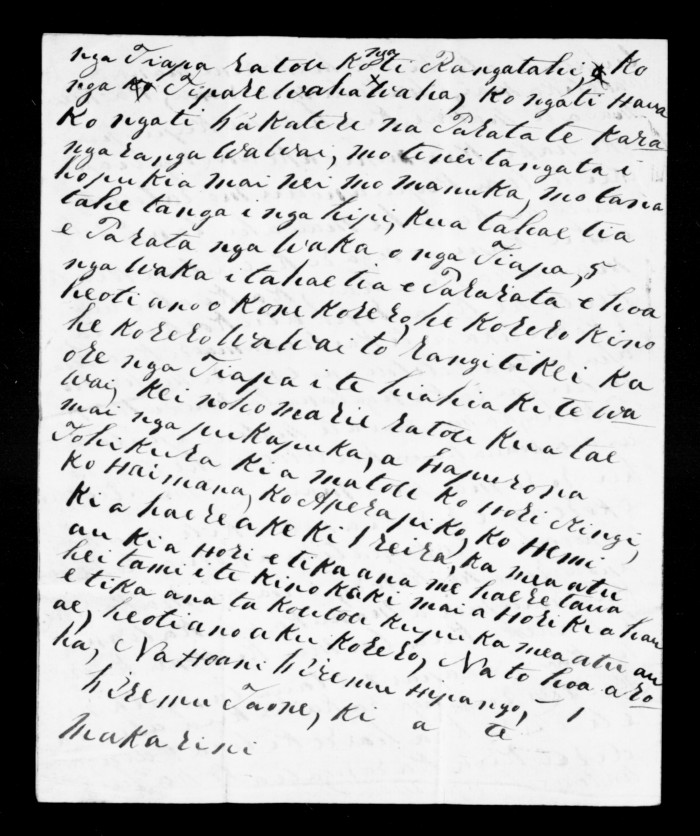 nga Tiapa ratou ko nga ti Rangatahi, ko
nga Tipare wahawaha, ko ngati Haua
Ko ngati hakatere na Paratate kara
nga ranga Wawai, mo tenei tangata i
hopukia mai nei mo manuka, mo tana
tahe tanga i nga hipi, kua tahae tia
e Parata nga waka o nga Tiapa, 5
nga waka i tahae tia e Pararata e hoa
heoti ano o Konei Korero, he Korero Kino
he Korero Wawai to Rangitikei Ka
ore nga Tiapa i te hiahia ki te wa
wai, Kei noho marie ratou Kua tae
mai nga pukapuka, a Hapurona
Tohikura Ki a matou Ko Hori Kingi,
Ko Haimana, Ko Aperapiko, Ko Hemi
Ki a haere ake Ki reira, ka mea atu
au ki a Hori e tika ana me haere taua
hei tami i te Kino kaki mai a Hori ki a hau
e tika ana ta Koutou Kupu ka mea atu au
ae, heoti ano aku Korero, Na to hoa aro
ha, Na Hoani hiremu Hipango,
hiremu Taone, ki a te
Makarini